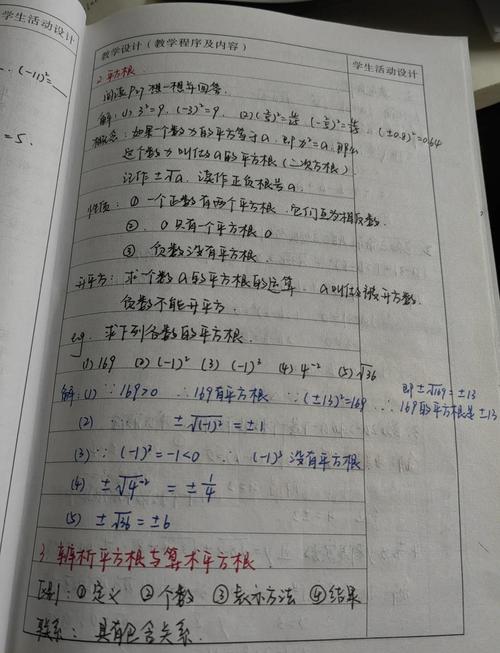 学生活动设计
(-1)²=
=5.
教学设计（教学程序及内容）
学生活动设计
2.平方根.
阅读P27 想一想并回答.
解：(1) 3²=9, (-3)²=9,
(±0.8)²=0.64
概念：如果一个数x的平方等于a，即x²=a，那么
这个数x叫做a的平方根（二次方根）
记作±√a，读作正负根号a.
性质：① 一个正数有两个平方根，它们互为相反数.
②. 0只有一个平方根 0
③. 负数没有平方根.
开平方：求一个数a的平方根的运算. a叫做被开方数.
负数不能开平方.
eg. 求下列各数的平方根.
(1) 169 (2) (-1)² (3) (-1)³ (4) 4⁻² (5) √36
解：(1) ∵ 169>0 ∴ 169有平方根 ∵ (±13)²=169 ∴ 169的平方根是±13
即±√169=±13
(2) ±√(-1)² = ±1
(3) ∵ (-1)³=-1<0 ∴ (-1)³ 没有平方根
(4) ±√4⁻² = ±1/4
(5) ±√36 = ±6
3. 辨析平方根与算术平方根.
区别：① 定义 ② 个数 ③ 表示方法 ④ 结果
联系：具有包含关系.